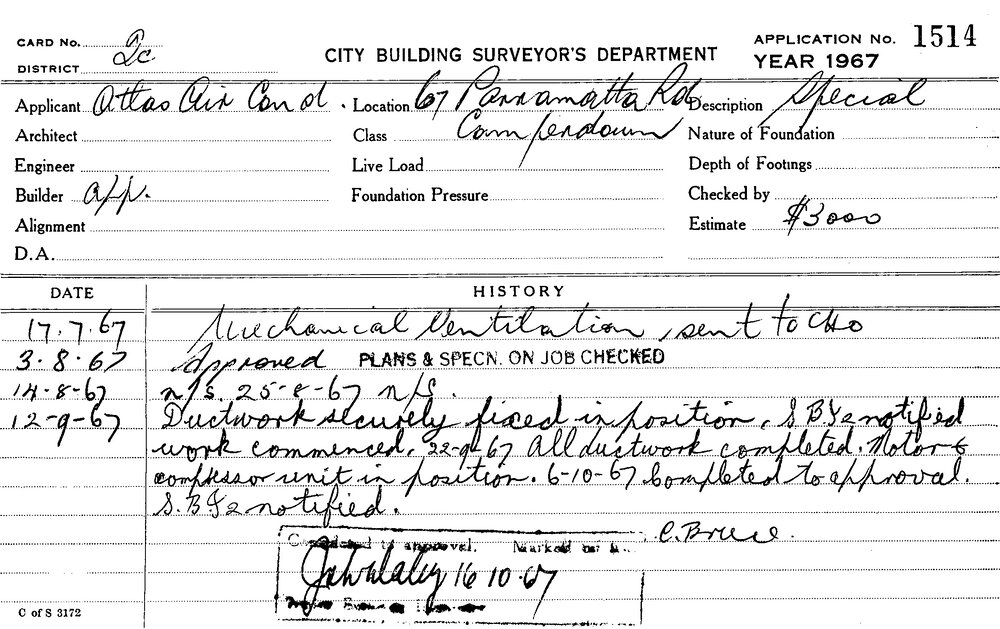 CARD No. 2c
DISTRICT
CITY BUILDING SURVEYOR'S DEPARTMENT
APPLICATION No. 1514
YEAR 1967
Applicant Atlas Air Cond. Location 67 Parramatta Rd Description Special
Architect Class Camperdown Nature of Foundation
Engineer Live Load Depth of Footings
Builder app. Foundation Pressure Checked by
Alignment Estimate $3000
D.A.
DATE HISTORY
17.7.67 Mechanical Ventilation, sent to CHO
3.8.67 Approved PLANS & SPECN. ON JOB CHECKED
14-8-67 n/s. 25-8-67 n/s.
12-9-67 Ductwork securely fixed in position, notified
work commenced. 22-9-67 All ductwork completed. Motor &
compressor unit in position. 6-10-67 Completed to approval.
notified.
C. Bruce.
to approval. Marked
16 10.67
C of S 3172